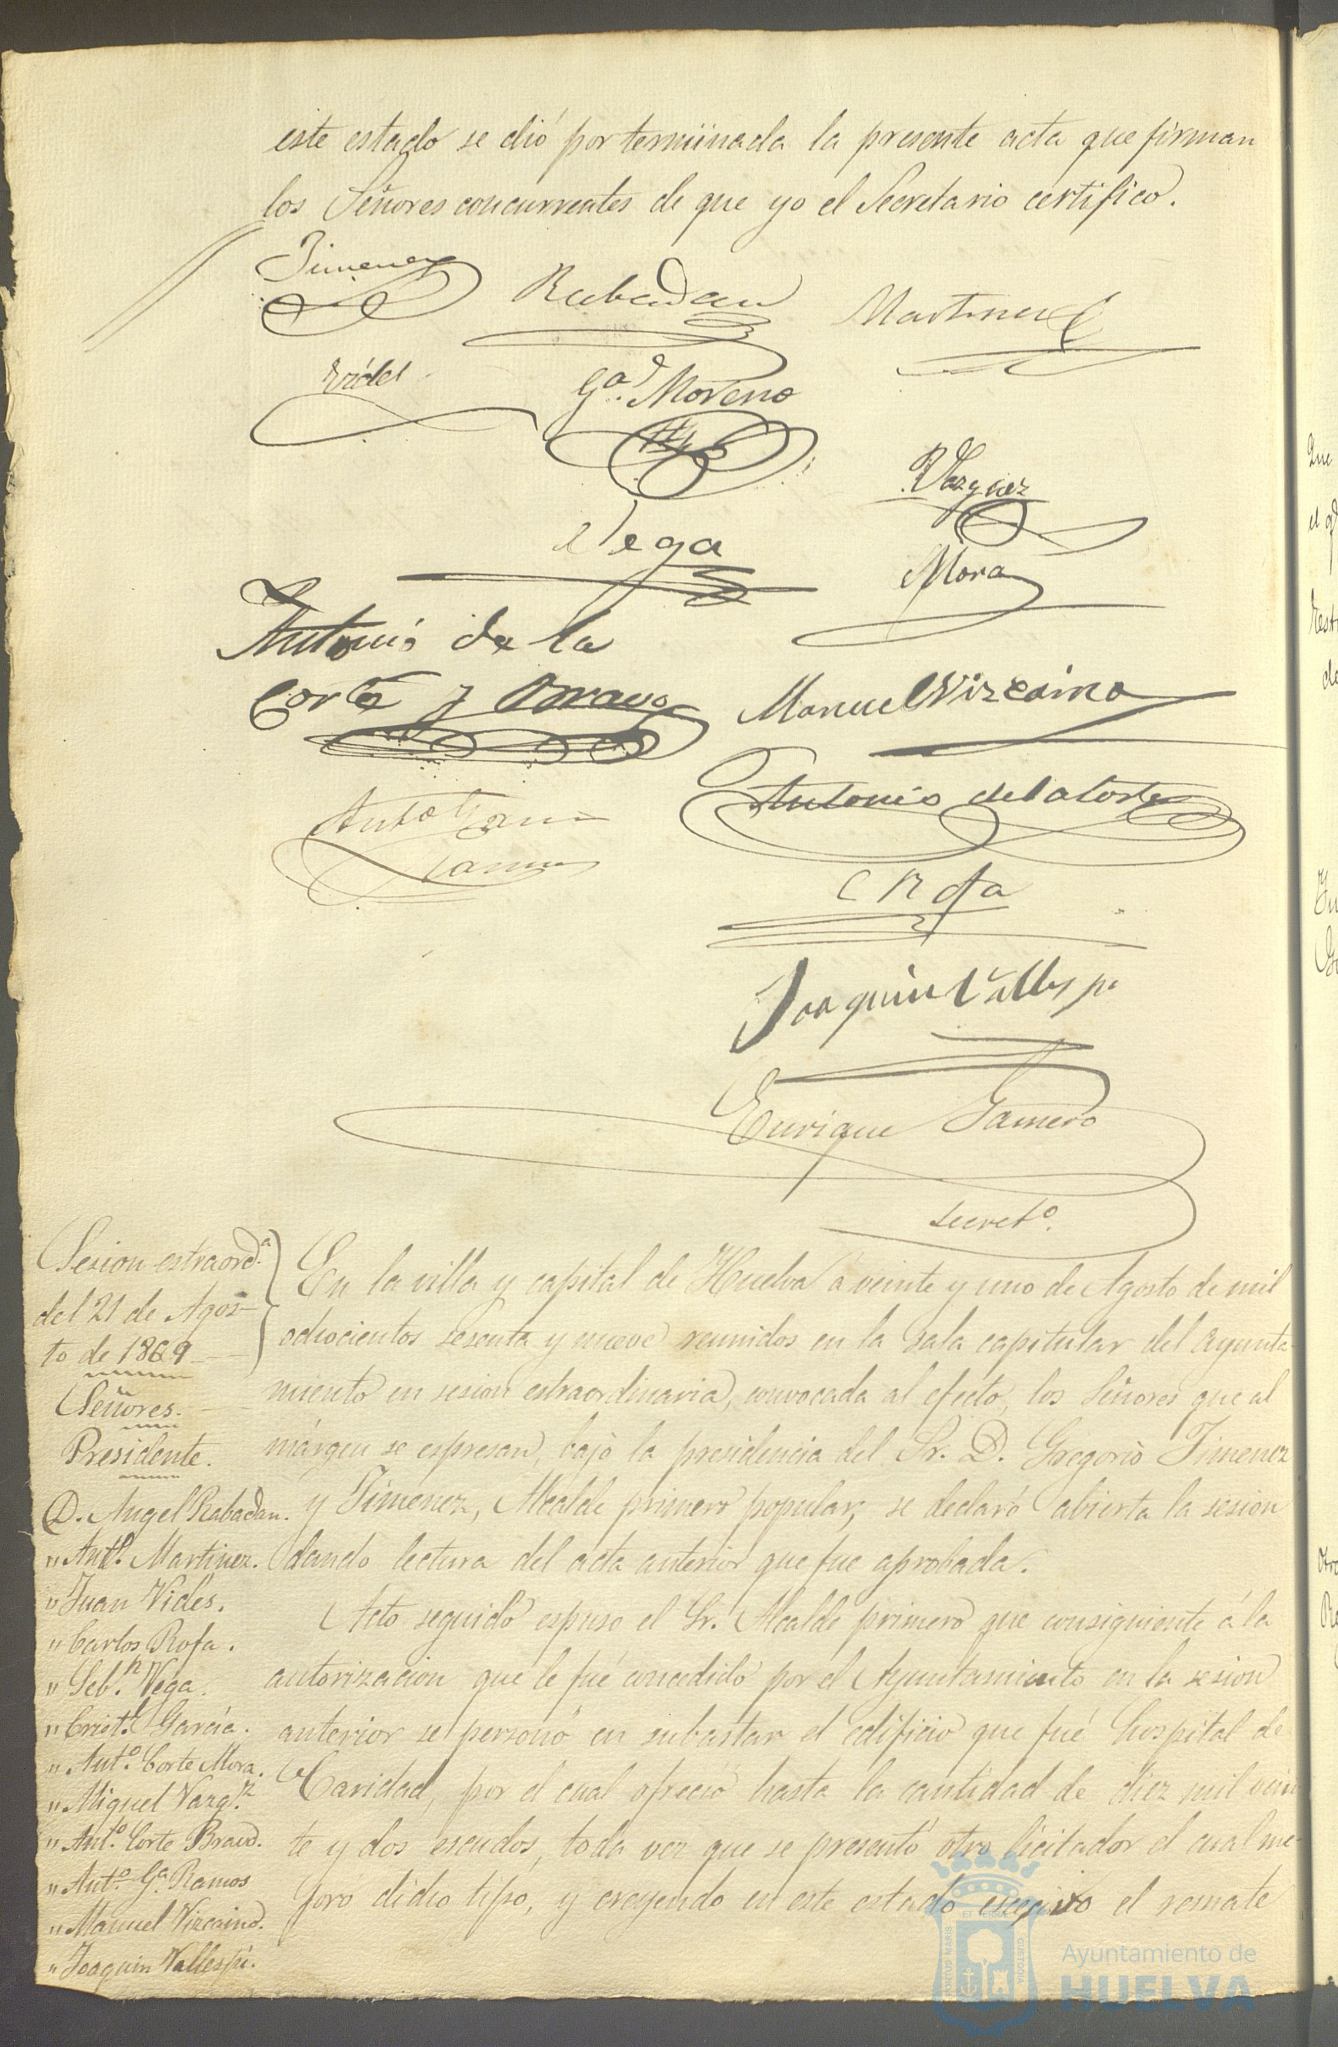 este estado se dió por terminada la presente acta que firman
los Señores concurrentes de que yo el Secretario certifico.
Jimenez
Rabadan
Martinez
Vides
Ga. Moreno
Vazquez
Vega
Mora
Antonio de la
Corte y Bravo
Manuel Vizcaino
Antonio de la Corte
Anto Garcia
Ramos
C Rofa
Joaquin Vallespi
Enrique Gamero
Secreto.
Sesion estraorda.
del 21 de Agos-
to de 1869
Señores.
Presidente.
D. Angel Rabadan.
" Anto. Martinez.
" Juan Vides.
" Carlos Rofa.
" Sebn. Vega.
" Cristl. García.
" Anto. Corte Mora.
" Miguel Vazqz.
" Anto. Corte Bravo.
" Anto. Ga. Ramos
" Manuel Vizcaino.
" Joaquin Vallespi.
En la villa y capital de Huelva a veinte y uno de Agosto de mil
ochocientos sesenta y nueve reunidos en la sala capitular del Ayunta-
miento en sesion estraordinaria, convocada al efecto, los Señores que al
márgen se espresan, bajo la presidencia del Sr. D. Gregorio Jimenez
y Jimenez, Alcalde primero popular, se declaró abierta la sesion
dando lectura del acta anterior que fue aprobada.
Acto seguido espuso el Sr. Alcalde primero que consiguiente á la
autorizacion que le fué concedido por el Ayuntamiento en la sesion
anterior se personó en subastar el edificio que fué hospital de
Caridad, por el cual ofreció hasta la cantidad de diez mil vein
te y dos escudos, toda vez que se presentó otro licitador el cual me-
joro dicho tipo, y creyendo en este estado escesivo el remate
Ayuntamiento de
HUELVA